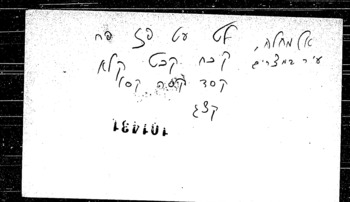 אלמחלה, לט עט פז פח
עיר במצרים קכח קכט קלא
קסד קסה קסו
קצג